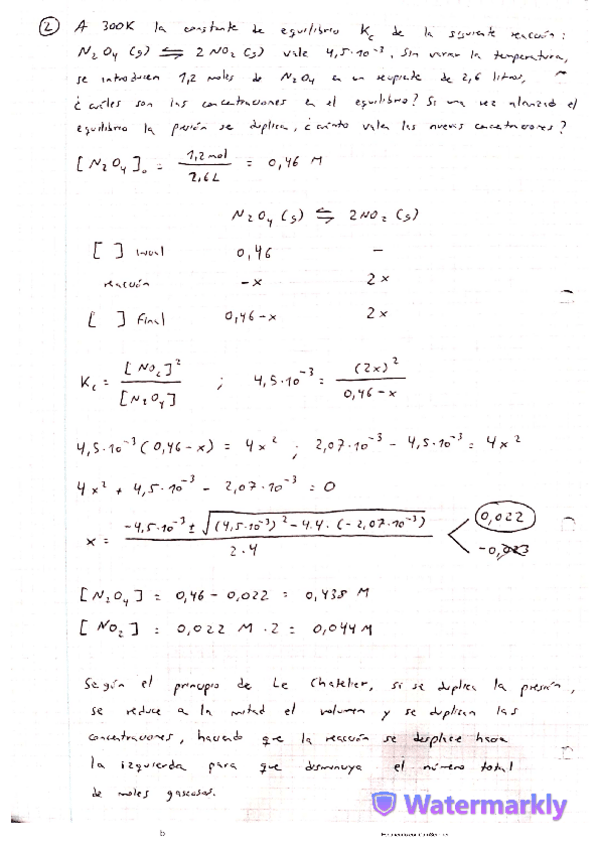 ② A 300K la constante de equilibrio Kc de la siguiente reacción:
N₂O₄ (g) ⇌ 2 NO₂ (g) vale 4,5·10⁻³. Sin variar la temperatura,
se introducen 1,2 moles de N₂O₄ en un recipiente de 2,6 litros,
¿cuáles son las concentraciones en el equilibrio? Si una vez alcanzado el
equilibrio la presión se duplica, ¿cuánto valen las nuevas concentraciones?
[N₂O₄]₀ = 1,2 mol / 2,6 L = 0,46 M
N₂O₄ (g) ⇌ 2NO₂ (g)
[ ] inicial 0,46 –
reacción -x 2x
[ ] final 0,46-x 2x
Kc = [NO₂]² / [N₂O₄] ; 4,5·10⁻³ = (2x)² / 0,46-x
4,5·10⁻³ (0,46-x) = 4x² ; 2,07·10⁻³ - 4,5·10⁻³ = 4x²
4x² + 4,5·10⁻³ - 2,07·10⁻³ = 0
x = -4,5·10⁻³ ± √(4,5·10⁻³)² - 4·4·(-2,07·10⁻³) / 2·4 < 0,022
-0,023
[N₂O₄] = 0,46 - 0,022 = 0,438 M
[NO₂] = 0,022 M · 2 = 0,044 M
Según el principio de Le Chatelier, si se duplica la presión,
se reduce a la mitad el volumen y se duplican las
concentraciones, haciendo que la reacción se desplace hacia
la izquierda para que disminuya el número total
de moles gaseosos.
Watermarkly